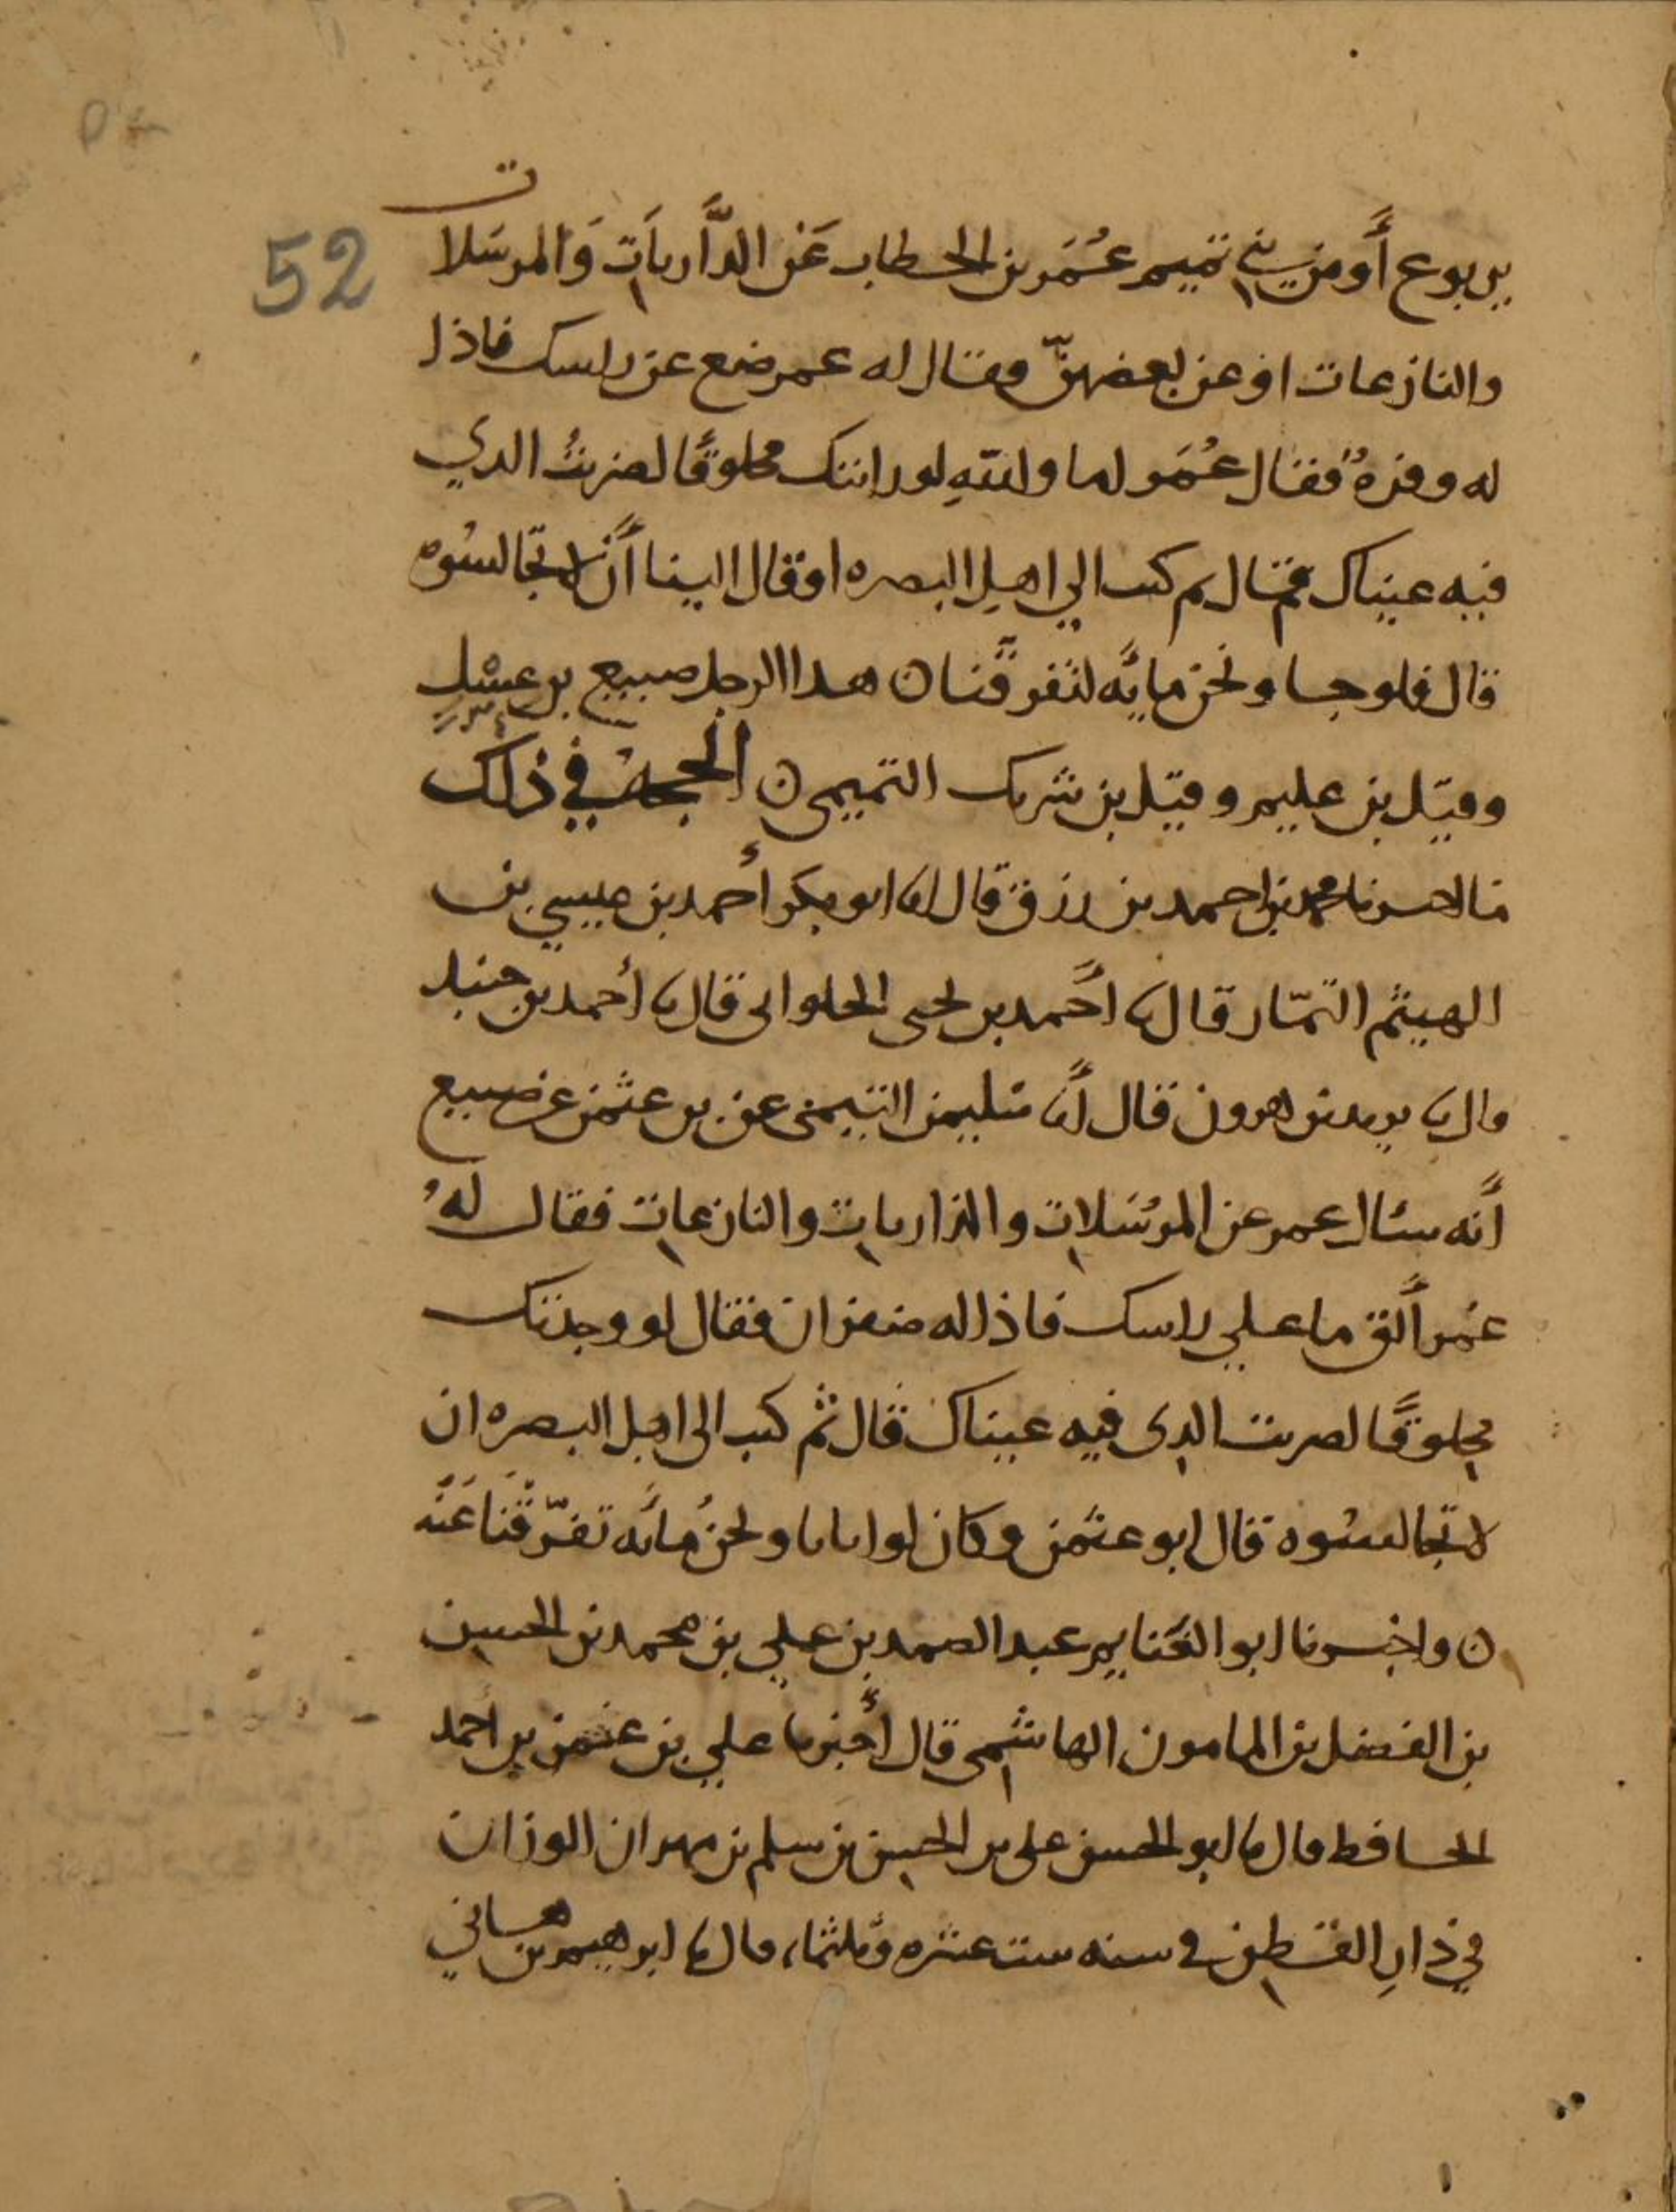 52
يربوع أو من بني تميم عُمَر بن الخطاب عَن الذَّاريَات وَالمرسَلات
والنازعات او عن بعضهنّ فقال له عمر ضع عن راسك فاذا
له وفرةٌ فقال عُمَر اما والله لو رايتك محلوقًا لضربتُ الذي
فيه عيناك قال ثم كتب الي اهل البصره او قال الينا أن لا تجالسُوه
قال فلو جا ونحن مايَه لتفرقَنا ن هذا الرجل صبيغ بن عِسْلٍ
وقيل بن عليم وقيل بن شريك التميمي ن الحجة في ذلك
ما احسرنا محمد بن احمد بن رزق قال انا ابو بكر أحمد بن عيسي بن
الهيثم التمّار قال نا أحمد بن يحيى الحلواني قال نا أحمد بن حنبل
قال نا يزيد بن هرون قال أنا سليمن التيمي عن بن عثمن عن صبيغ
أنه سئال عمر عن المرُسَلات والذاريات والنازعات فقال لهُ
عُمر ألق ما علي راسك فاذا له ضفران فقال لو وجدتك
محلوقًا لضربت الذي فيه عيناك قال ثم كتب الى اهل البصره ان
لا تجالسُوه قال ابو عثمن وكان لو اتانا ونحنُ مائَه تفرّقنَا عَنْه
ن واخبرنا ابو الغنايم عبد الصمد بن علي بن محمد بن الحسين
بن الفضل بن المامون الهاشمي قال أخبرنا علي بن عثمن بن أحمد
الحافظ قال نا ابو الحسن علي بن الحسين بن سلم بن مهران الوزان
في دارِ القطن في سنه ست عشره وثلثماء قال نا ابرهيم بن هاني